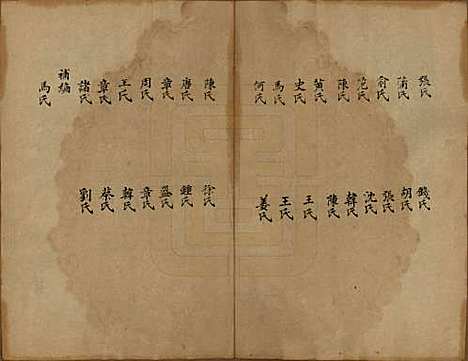 張氏
蘭氏
俞氏
范氏
陳氏
黄氏
史氏
馬氏
何氏
錢氏
胡氏
張氏
沈氏
韓氏
陳氏
王氏
王氏
姜氏
陳氏
唐氏
章氏
周氏
王氏
章氏
諸氏
補編
馬氏
徐氏
鍾氏
孟氏
章氏
韓氏
蔡氏
劉氏